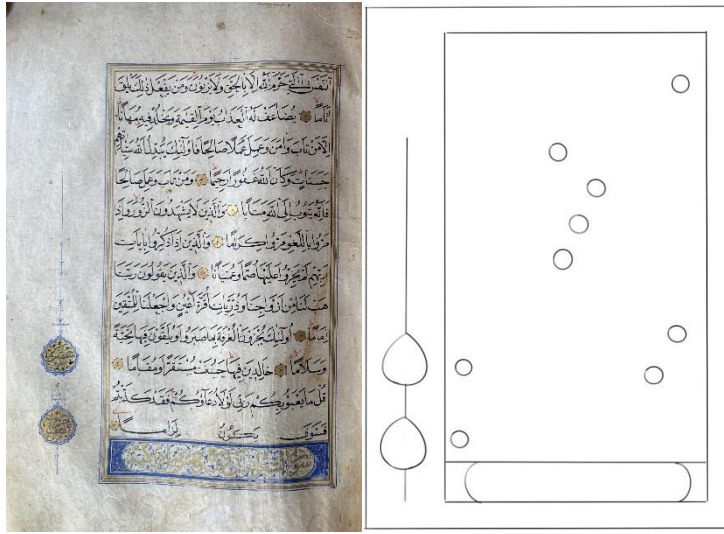 النفس التي حرم الله الا بالحق ولا يزنون ومن يفعل ذلك يلق
اثاما يضاعف له العذاب يوم القيمة ويخلد فيه مهانا
الا من تاب وامن وعمل عملا صالحا فاولئك يبدل الله سيئاتهم
حسنات وكان الله غفورا رحيما ومن تاب وعمل صالحا
فانه يتوب الى الله متابا والذين لا يشهدون الزور واذا
مروا باللغو مروا كراما والذين اذا ذكروا بايات
ربهم لم يخروا عليها صما وعميانا والذين يقولون ربنا
هب لنا من ازواجنا وذرياتنا قرة اعين واجعلنا للمتقين
اماما اولئك يجزون الغرفة بما صبروا ويلقون فيها تحية
وسلاما خالدين فيها حسنت مستقرا ومقاما
قل ما يعبؤا بكم ربي لولا دعاؤكم فقد كذبتم
فسوف يكون لزاما